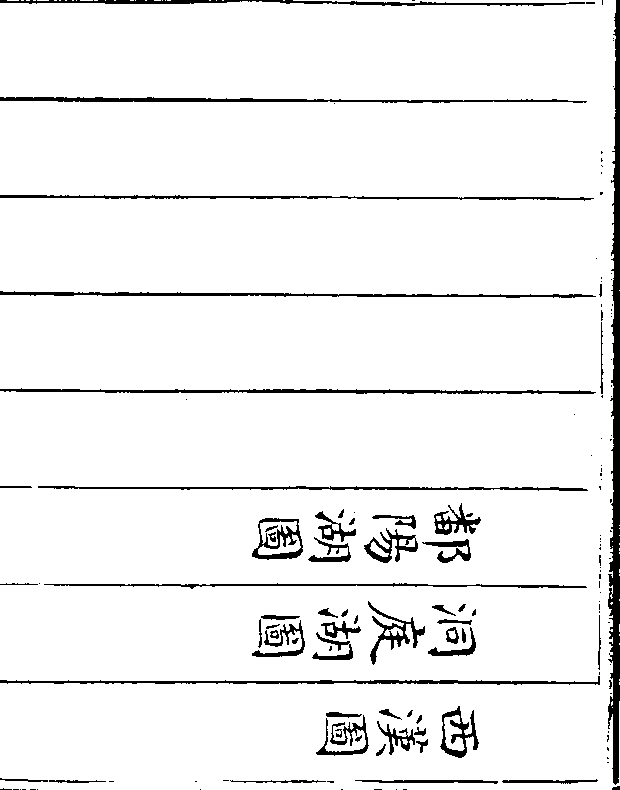 西漢圖
洞庭湖圖
鄱陽湖圖